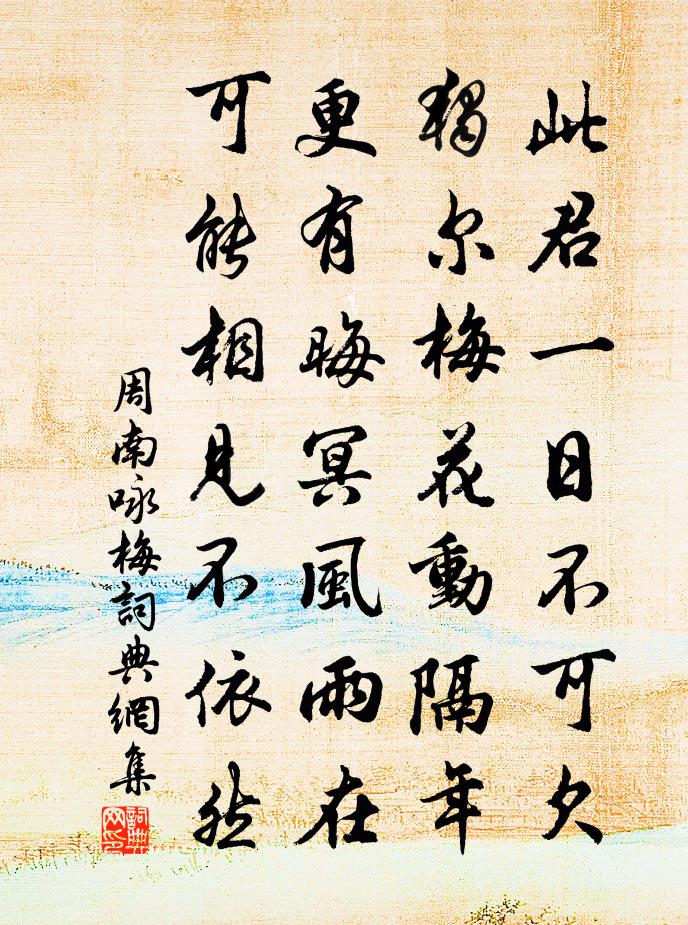 此君一日不可欠
獨尔梅花動隔年
更有晦冥風雨在
可能相見不依然
周南咏梅詞典網集
詞典网印